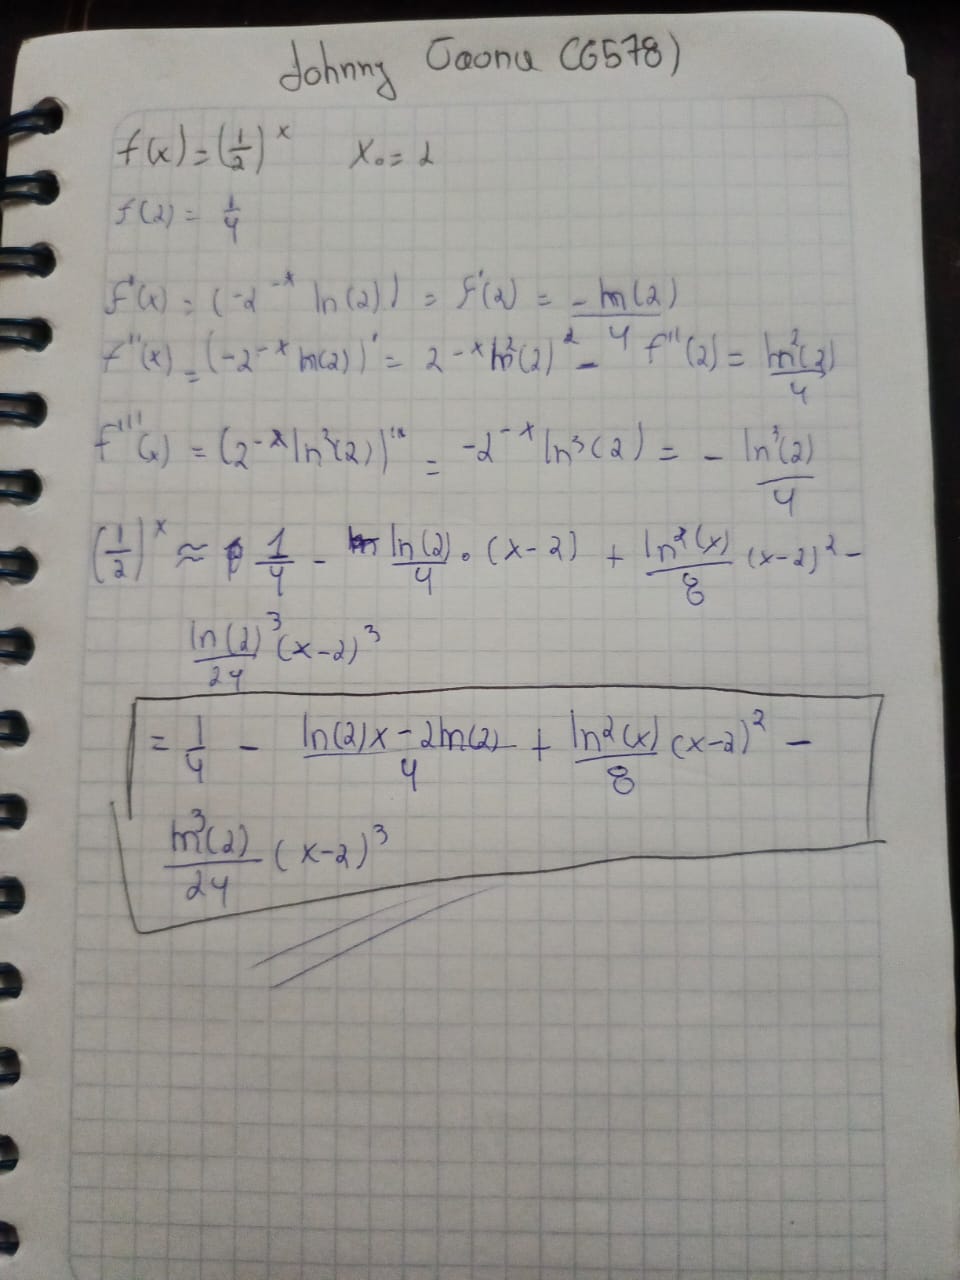 Johnny Gaona (6578)
f(x) = (1/2)^x   x₀ = 2
f(2) = 1/4
f'(x) = (-2^-x ln(2)) = f'(2) = -ln(2)/4
f''(x) = (-2^-x ln(2))' = 2^-x ln²(2)² - f''(2) = ln²(2)/4
f'''(x) = (2^-x ln²(2))''' = -2^-x ln³(2) = - ln³(2)/4
(1/2)^x ≈ 1/4 - ln(2)/4 · (x-2) + ln²(x)/8 (x-2)² -
ln(2)³/24 (x-2)³
= 1/4 - ln(2)x-2ln(2)/4 + ln²(x)/8 (x-2)² -
ln³(2)/24 (x-2)³